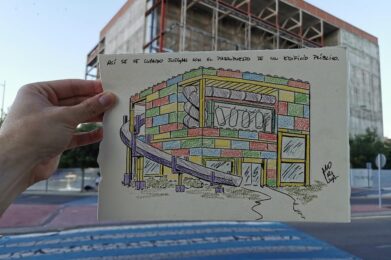 ASÍ SE VE CUANDO JUEGAS CON EL PRESUPUESTO DE UN EDIFICIO PÚBLICO.